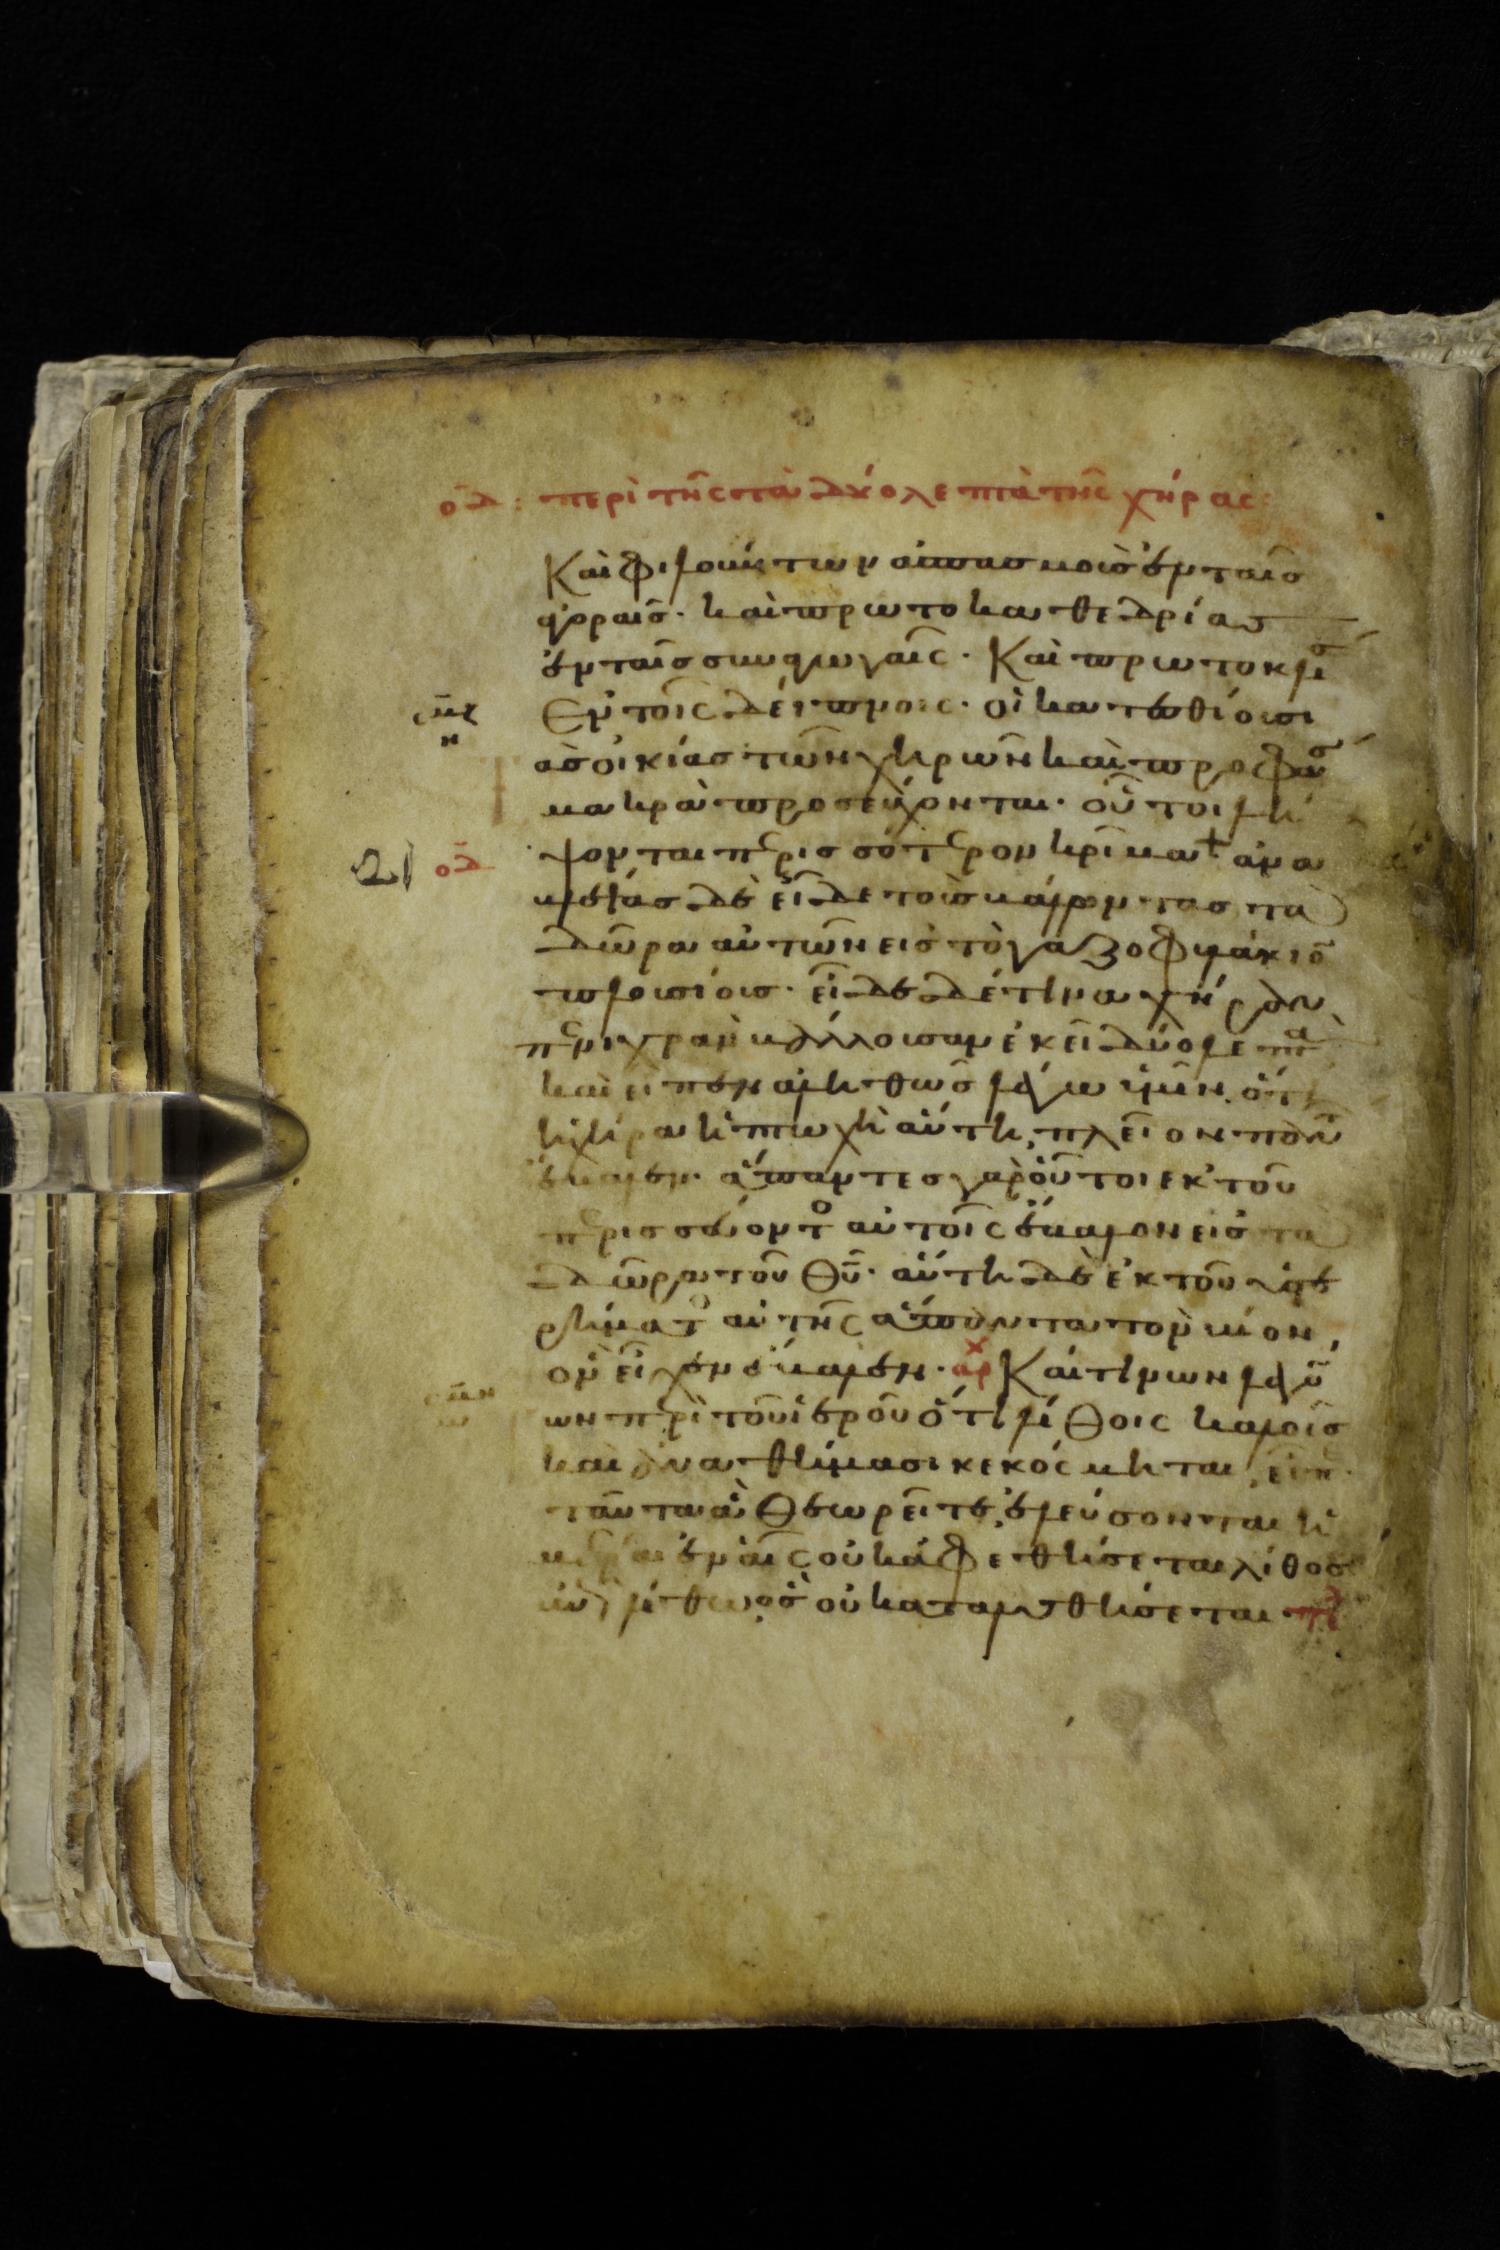 οδ: περὶ τῆς τὰ δύο λεπτὰ τῆς χήρας:
Καὶ φιλούντων ἀσπασμοὺς ἐν ταῖς
ἀγοραῖς· καὶ πρωτοκαθεδρίας
ἐν ταῖς συναγωγαῖς· Καὶ πρωτοκλι
Ἐν τοῖς δείπνοις· οἳ κατεσθίουσι
ὰς οἰκίας τῶν χηρῶν καὶ προφα
μακρὰ προσεύχονται· οὗτοι λή
οδ ψονται περισσότερον κρίμα + ἀνα
21
βλέψας δὲ εἶδε τοὺς βάλλοντας τὰ
δῶρα αὐτῶν εἰς τὸ γαζοφυλάκιο
πλουσίους· εἶδε δέ τινα χήραν
πενιχρὰν βάλλουσαν ἐκεῖ δύο λεπτα
καὶ εἶπεν ἀληθῶς λέγω ὑμῖν ὅτι
ἡ χήρα ἡ πτωχὴ αὕτη πλεῖον παν
ἔβαλεν· ἅπαντες γὰρ οὗτοι ἐκ τοῦ
περισσεύοντο αὐτοῖς ἔβαλον εἰς τὰ
δῶρα τοῦ θυ· αὕτη δὲ ἐκ τοῦ ὑστε
ρήματο αὐτῆς ἅπαντα τὸν βίον
ὃν εἶχεν ἔβαλεν· αρχ Καί τινων λεγο
ων περὶ τοῦ ἱεροῦ ὅτι λίθοις καλοῖς
καὶ ἀναθήμασι κεκόσμηται, εἶπ
ταῦτα ἃ θεωρεῖτε, ἐλεύσονται ἡ
μέραι ἐν αἷς οὐκ ἀφεθήσεται λίθος
ἐπὶ λίθω ὃς οὐ καταλυθήσεται